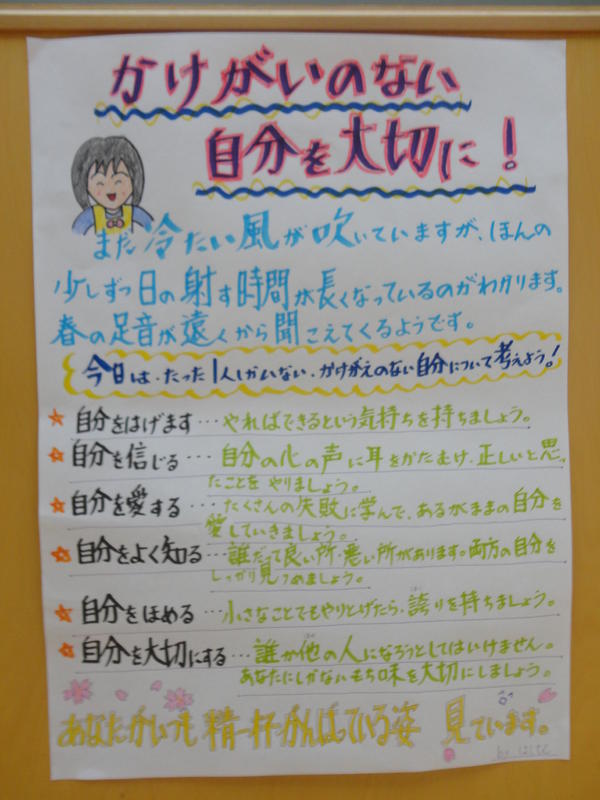 かけがいのない
自分を大切に！
まだ冷たい風が吹いていますが、ほんの
少しずつ日の射す時間が長くなっているのがわかります。
春の足音が遠くから聞こえてくるようです。
今日は、たった1人しかいない、かけがえのない自分について考えよう！
☆ 自分をはげます…やればできるという気持ちを持ちましょう。
☆ 自分を信じる…自分の心の声に耳をかたむけ、正しいと思っ
たことをやりましょう。
☆ 自分を愛する…たくさんの失敗に学んで、あるがままの自分を
愛していきましょう。
☆ 自分をよく知る…誰だって良い所・悪い所があります。両方の自分を
しっかり見つめましょう。
☆ 自分をほめる…小さなことでもやりとげたら、誇りを持ちましょう。
☆ 自分を大切にする…誰か他の人になろうとしてはいけません。
あなたにしかないもち味を大切にしましょう。
あなたがいつも精一杯がんばっている姿 見ています。
by